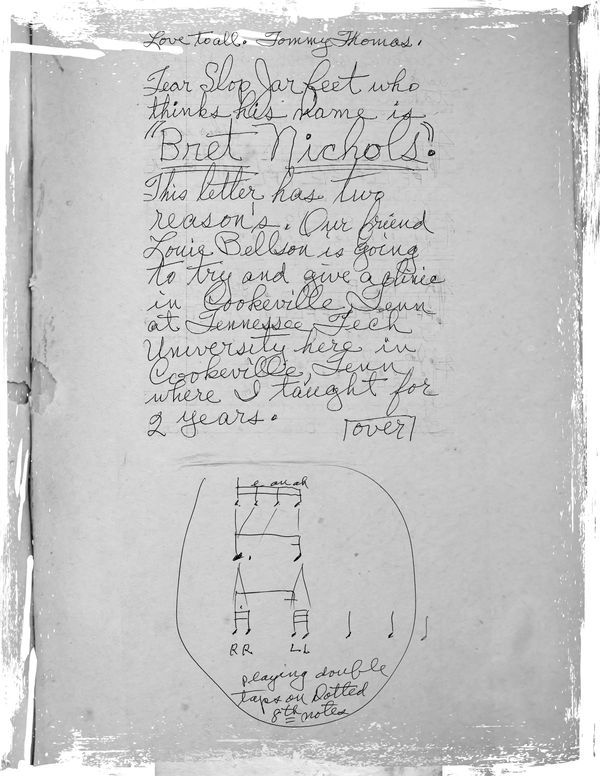 Love to all. Tommy Thomas.
Fear Slop Jar feet who
thinks his name is
"Bret Nichols".
This letter has two
reason's. Our friend
Louie Bellson is going
to try and give a clinic
in Cookeville, Tenn
at Tennessee Tech
University here in
Cookeville, Tenn
where I taught for
2 years.
over
e an ah
RR LL
playing double
taps on Dotted
8th notes